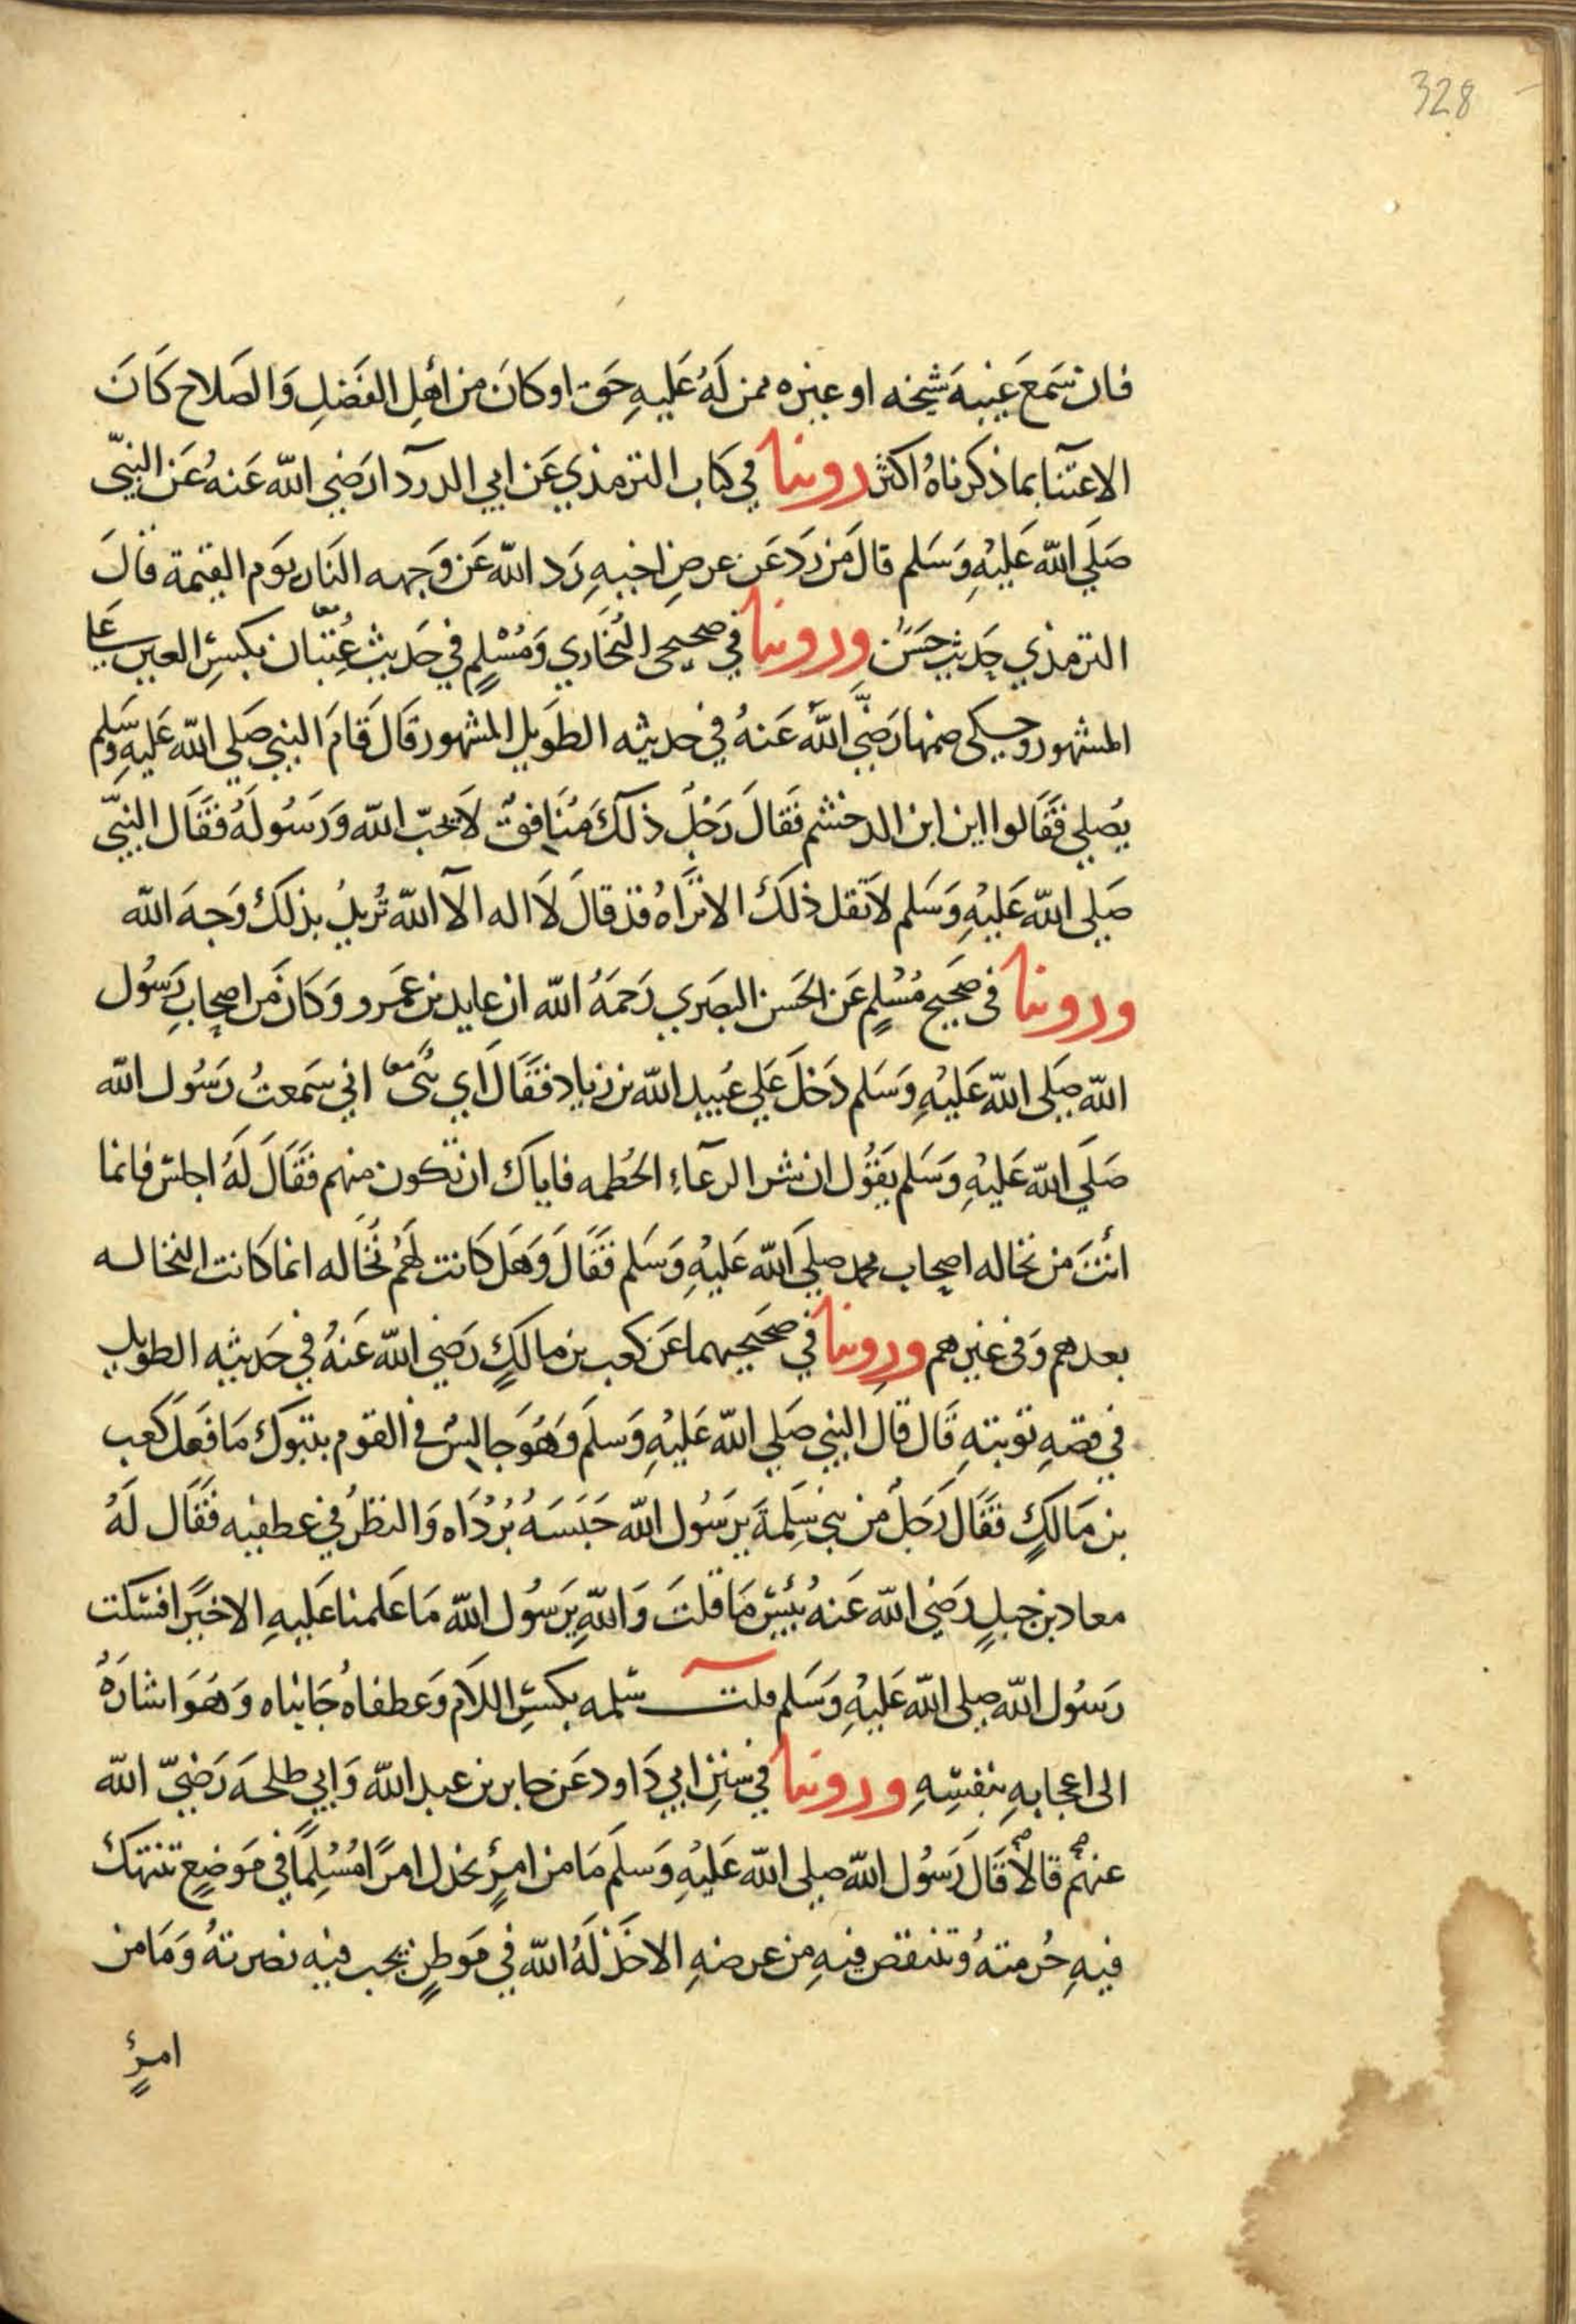 328
فان سَمعَ غيبهَ شيخه او غيره ممن لَهُ عَليهِ حَق او كانَ من اَهلِ الفَضلِ وَالصَلاح كَانَ
الاعتنآ بما ذكرناهُ اكثر روينا في كتاب الترمذي عَن ابي الدردآ رَضي الله عَنهُ عَن النبيّ
صَلَي الله عَليْهِ وَسَلم قالَ مَن رَد عَن عرضِ اخيهِ رَد الله عَن وَجهه النَار يَوم القيمة قالَ
الترمذي حَديث حَسَن وروينا في صحيحي البُخَاري وَمُسْلمٍ في حَديث عِتبَان بكسِر العين عَلي
المشهور وحكى ضمها رَضيَ الله عَنهُ في حديثه الطَويل المشهور قَالَ قَامَ النبي صَلي الله عَليهِ وسَلم
يصُلي فقَالوا اين ابن الدخشم فقَالَ رَجُل ذلكَ مُنَافق لاَ يحبّ الله وَرَسُولهُ فقَال النبيّ
صَلي الله عَليْهِ وَسَلم لا تقل ذلكَ الا تَراهُ قد قالَ لاَ اله الآ الله يُريدُ بذلكَ وَجهَ الله
وروينا في صَحيح مُسْلمٍ عَن الحَسن البصَري رَحمهُ الله ان عايد بن عمَرو وَكانَ من اصحابِ رَسُول
الله صَلي الله عَليْهِ وَسَلم دَخلَ عَلي عُبيد الله بن زياد فقَالَ اي بُنىَّ اني سَمعتُ رَسُول الله
صَلي الله عَليْهِ وَسَلم يَقوُل ان شر الرعآءِ الحُطمه فاياك ان تكون منهم فقَالَ لَهُ اجلس فانما
أنتَ من نخاله اصحاب محمد صلي الله عَليْهِ وَسَلم فقَالَ وَهَل كانت لَهُم نُخَاله انما كانت النخاله
بعدهم وَفي غيرهم وروينا في صَحيحيهما عَن كعب بن مالكٍ رَضي الله عَنهُ في حَديثه الطويل
في قصهِ توبتهِ قَال قالَ النبي صَلي الله عَليْهِ وَسلَم وَهوَ جَالسٌ في القوم بتبوك مَا فعَلَ كَعب
بن مَالكٍ فقَالَ رَجلٌ من بني سَلِمةَ يرَسُول الله حَبَسهُ بُرْدَاه وَالنظرُ في عطفيه فقَال لَهُ
معاد بن جبلٍ رَضي الله عَنهُ بئسَ مَا قلتَ وَاللهِ يرَسُول الله مَا عَلمنا عَليهِ الا خيًرا فسَكت
رَسُول الله صلي الله عَليْهِ وَسَلم قلت سَلمه بكسِر اللام وَعطفاهُ جَانباه وَهوَ اشارَهُ
الى اعجابهِ بنفسِهِ وروينا في سننِ ابي دَاود عَن جابر بن عبد الله وَابي طلحه رَضيَ الله
عنهُم قالاَ قَالَ رَسُول الله صلي الله عَليْهِ وَسلَم مَا من امرٍئ يخذل امرًا مُسْلِمًا في مَوضعٍ تنتهك
فيهِ حُرمتهُ وتنتقص فيهِ من عرضهِ الا خَذلَهُ الله في مَوطنٍ يحب فيه نصرتهُ وَمَا من
امرٍئ